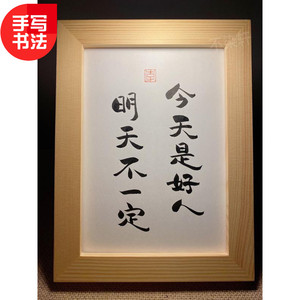 手写
书法
今天是好人
明天不一定